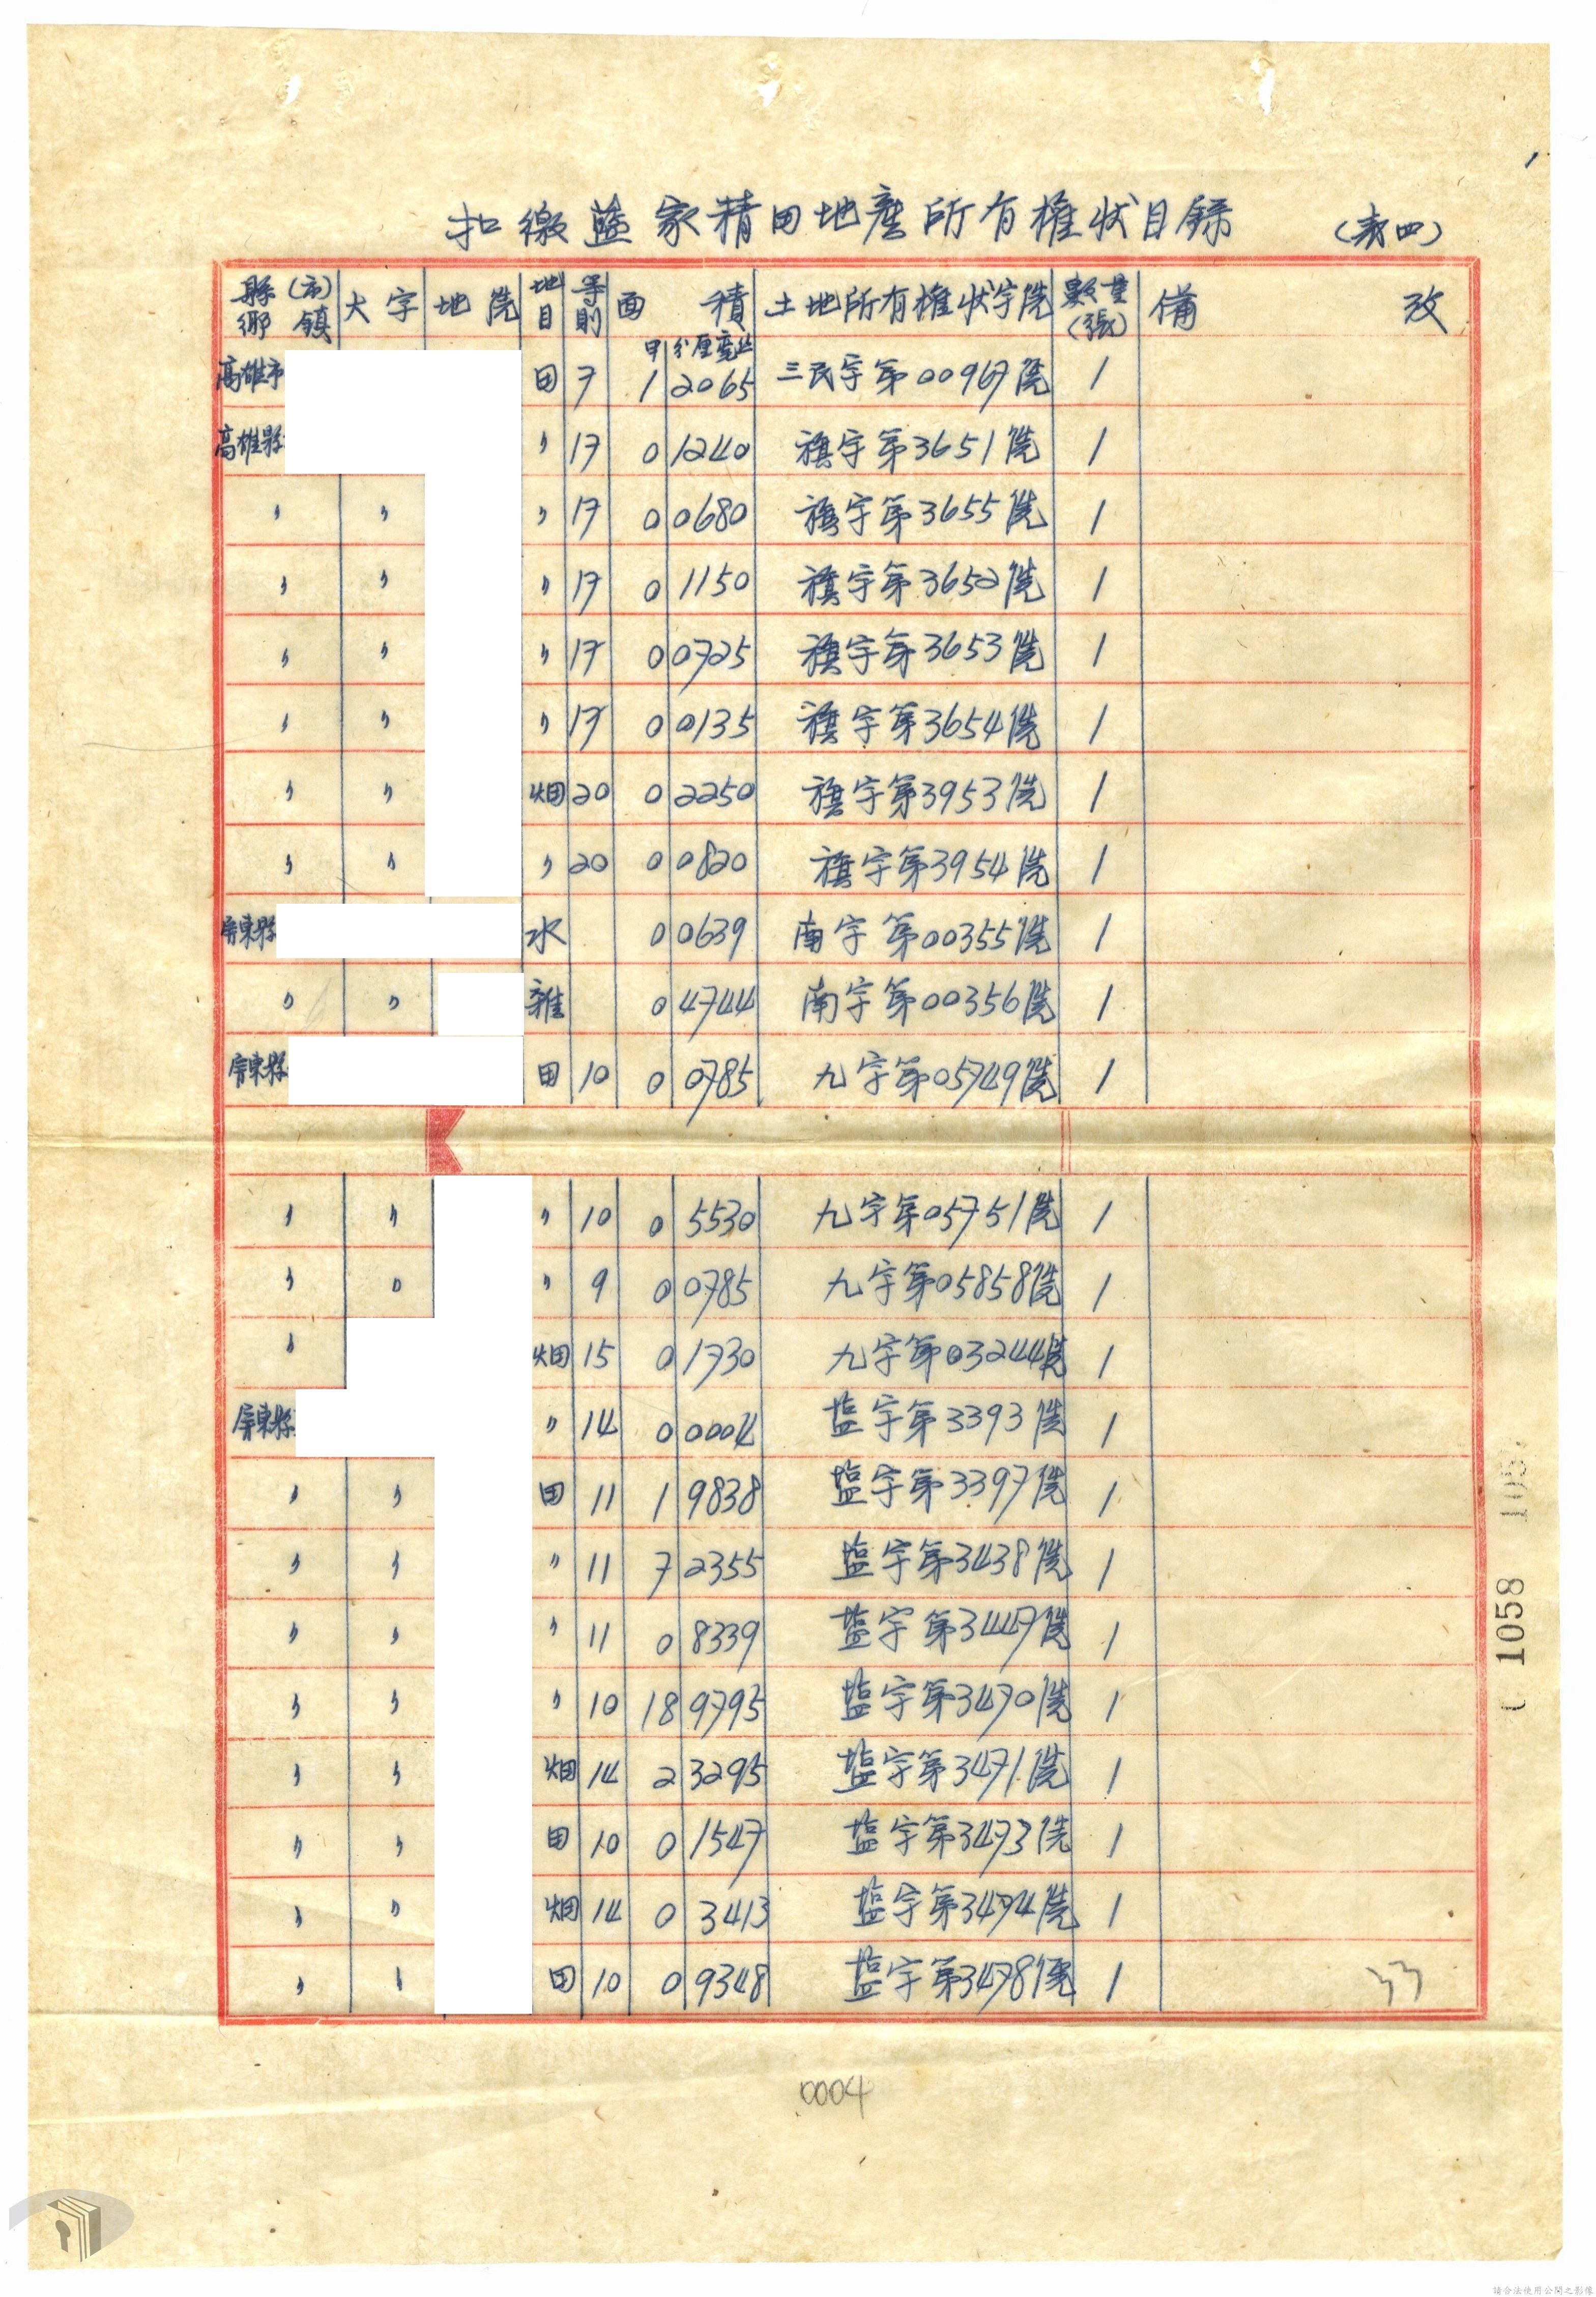 扣繳藍家精田地產所有權狀目錄 （表四）
縣(市)鄉鎮 大字 地號 地目 等則 面積 土地所有權狀字號 數量(張) 備攷
甲 分厘毫丝
高雄市 田 7 1 2065 三民字第00967號 1
高雄縣 〃 17 0 1240 旗字第3651號 1
〃 〃 〃 17 0 0680 旗字第3655號 1
〃 〃 〃 17 0 1150 旗字第3652號 1
〃 〃 〃 17 0 0725 旗字第3653號 1
〃 〃 〃 17 0 0135 旗字第3654號 1
〃 〃 畑 20 0 2250 旗字第3953號 1
〃 〃 〃 20 0 0820 旗字第3954號 1
屏東縣 水 0 0639 南字第00355號 1
〃 〃 雜 0 4744 南字第00356號 1
屏東縣 田 10 0 0785 九字第05749號 1
〃 〃 〃 10 0 5530 九字第05751號 1
〃 〃 〃 9 0 0785 九字第05858號 1
〃 畑 15 0 1730 九字第03244號 1
屏東縣 〃 14 0 0004 盐字第3393號 1
〃 〃 田 11 1 9838 盐字第3397號 1
〃 〃 〃 11 7 2355 盐字第3438號 1
〃 〃 〃 11 0 8339 盐字第3447號 1
〃 〃 〃 10 18 9795 盐字第3470號 1
〃 〃 畑 14 2 3295 盐字第3471號 1
〃 〃 田 10 0 1547 盐字第3473號 1
〃 〃 畑 14 0 3413 盐字第3474號 1
〃 〃 田 10 0 9348 盐字第3478號 1
33
1058
0004
請合法使用公開之影像